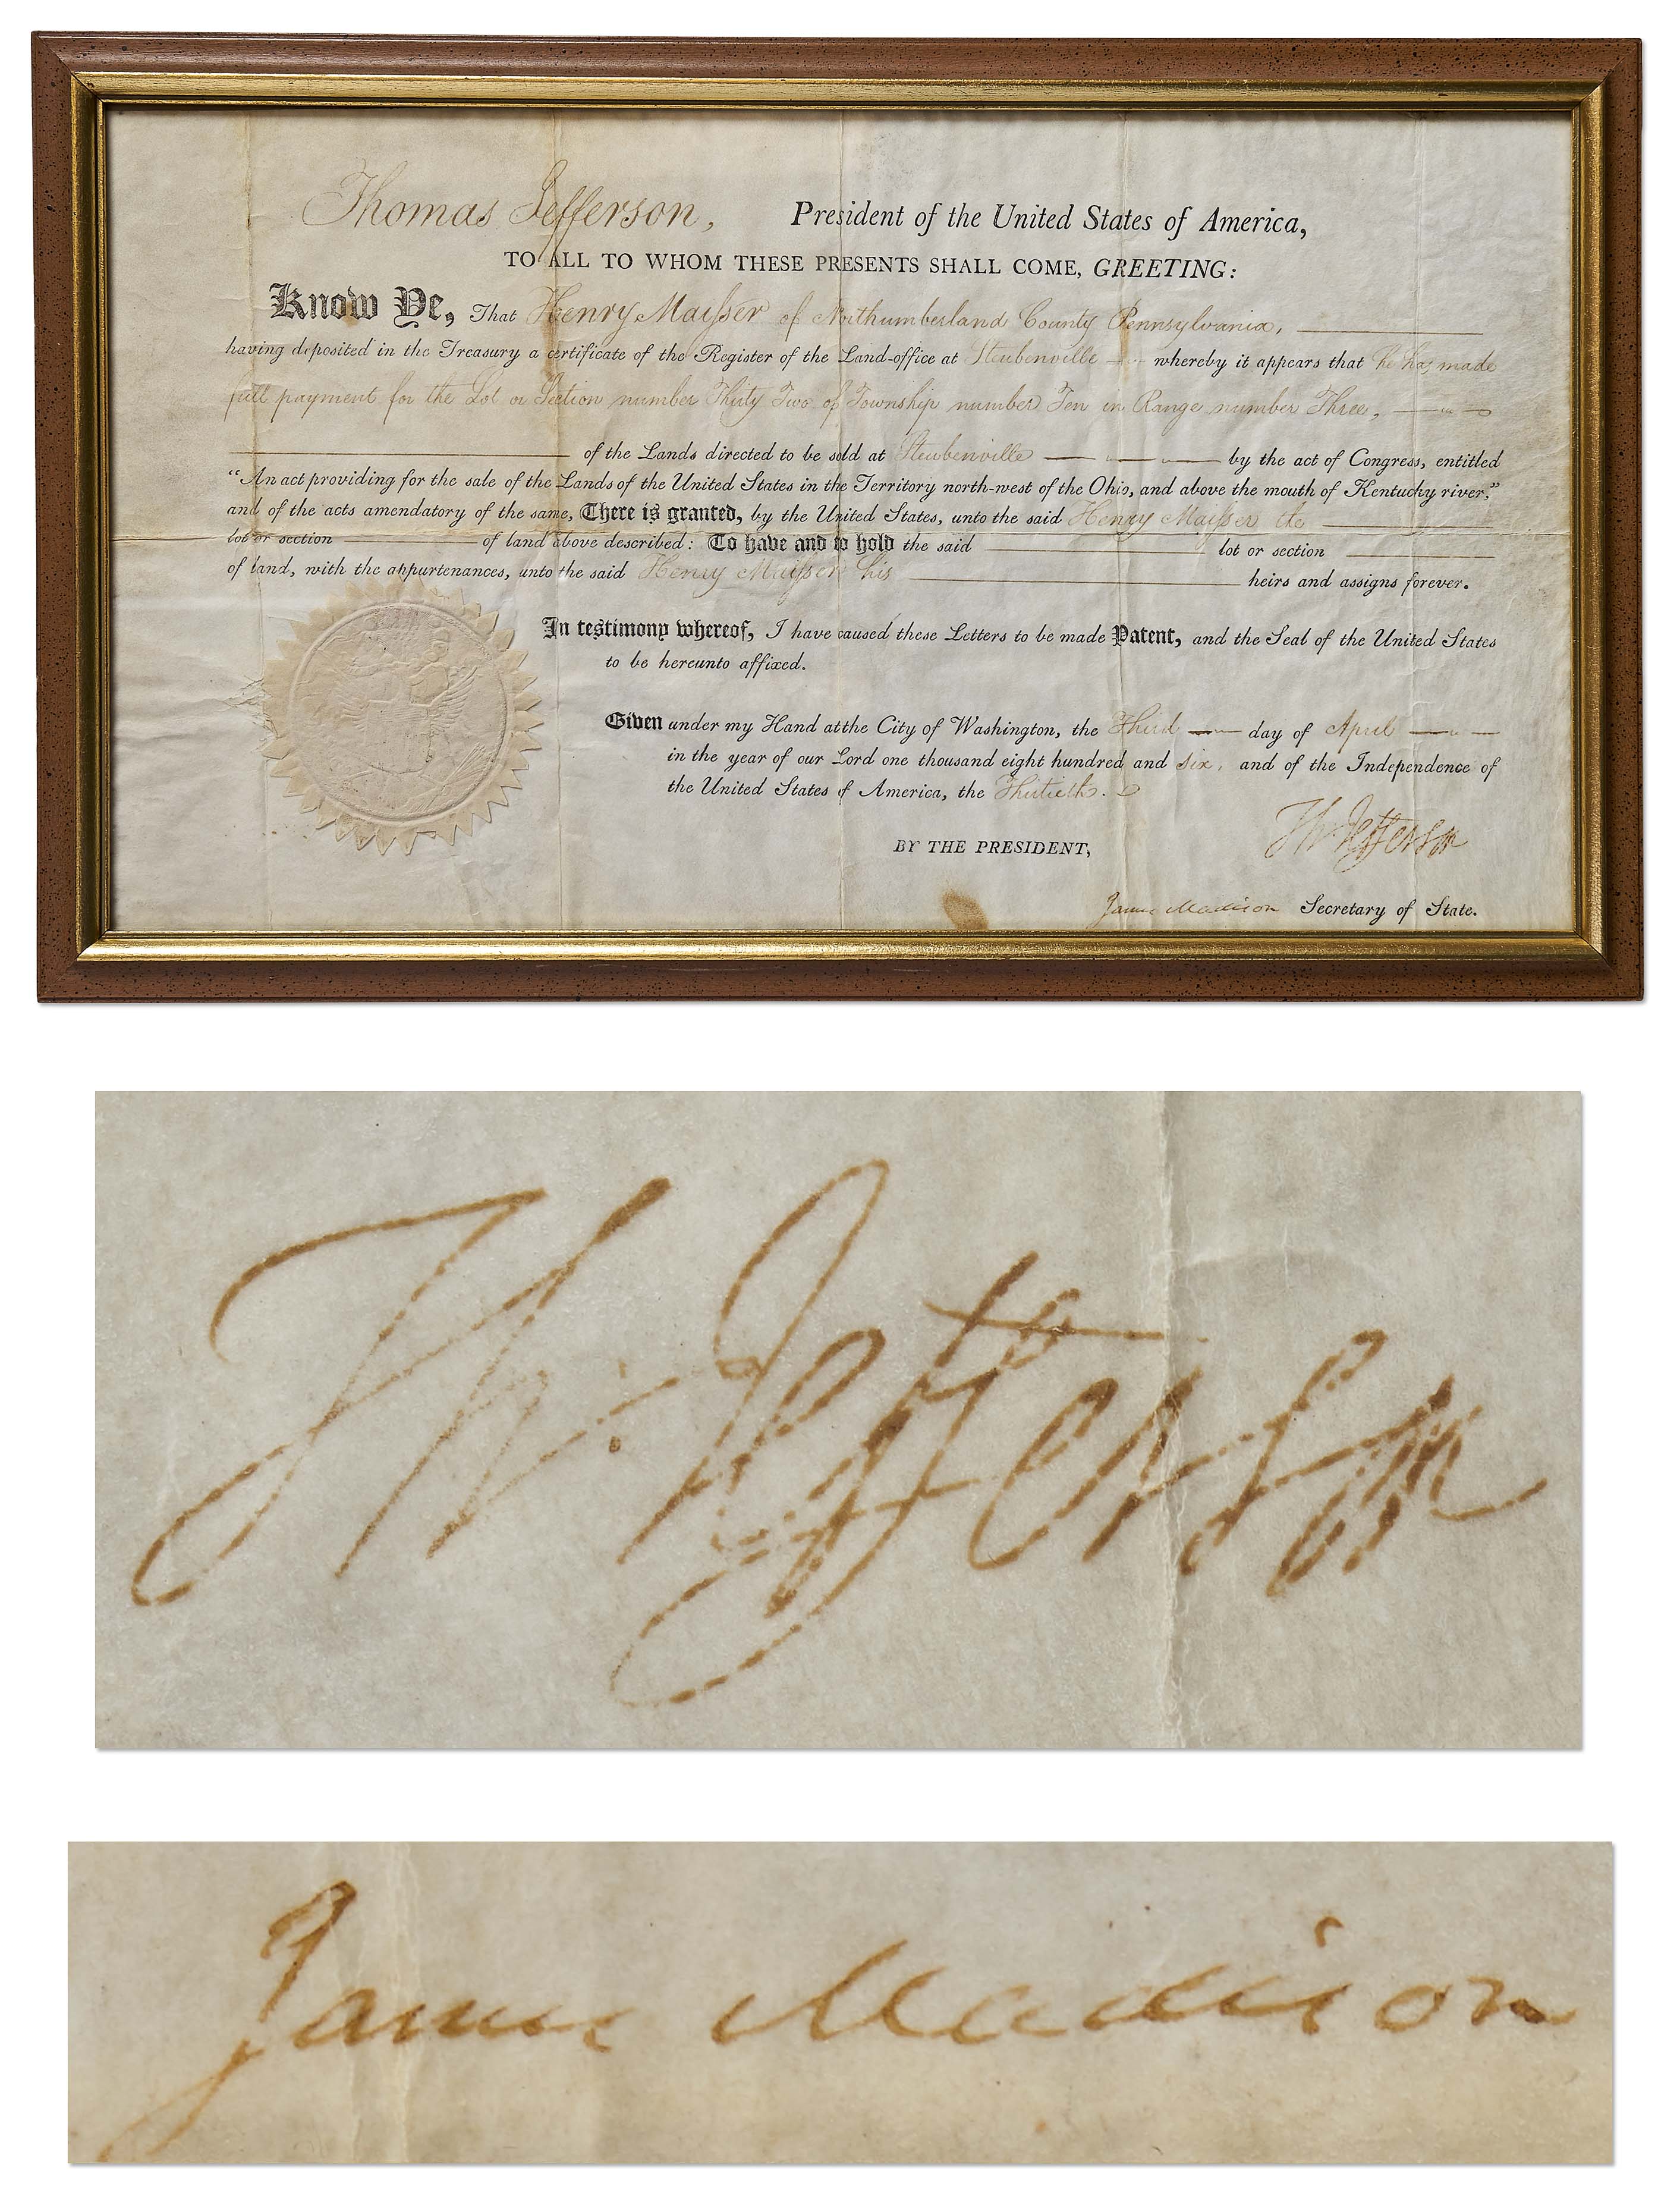 Thomas Jefferson, President of the United States of America,
TO ALL TO WHOM THESE PRESENTS SHALL COME, GREETING:
Know Ye, That Henry Maysser of Northumberland County Pennsylvania,
having deposited in the Treasury a certificate of the Register of the Land-office at Steubenville whereby it appears that he has made
full payment for the Lot or Section number Thirty Two of Township number Ten in Range number Three,
of the Lands directed to be sold at Steubenville by the act of Congress, entitled
“An act providing for the sale of the Lands of the United States in the Territory north-west of the Ohio, and above the mouth of Kentucky river,”
and of the acts amendatory of the same, There is granted, by the United States, unto the said Henry Maysser the
lot or section of land above described: To have and to hold the said lot or section
of land, with the appurtenances, unto the said Henry Maysser his heirs and assigns forever.
In testimony whereof, I have caused these Letters to be made Patent, and the Seal of the United States
to be hereunto affixed.
Given under my Hand at the City of Washington, the Third day of April
in the year of our Lord one thousand eight hundred and six, and of the Independence of
the United States of America, the Thirtieth.
Th: Jefferson
BY THE PRESIDENT,
James Madison Secretary of State.
Th: Jefferson
James Madison